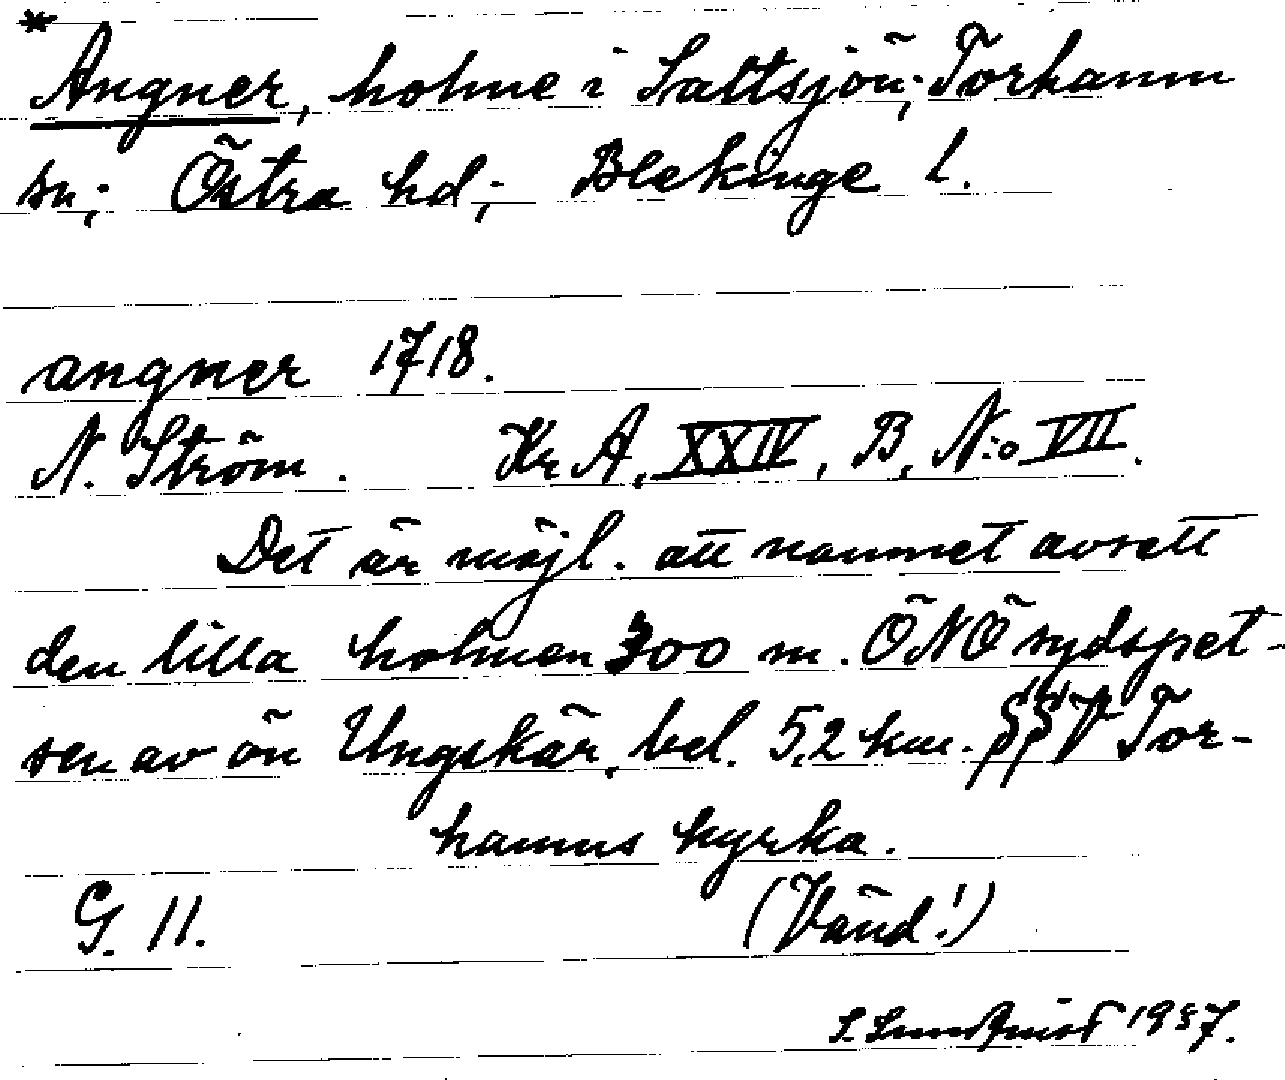 * Angner, holme i Saltsjön; Torhamn
sn; Östra hd; Blekinge l.
angner 1718.
N. Ström. Kr A, XXIV, B, N:o VII.
Det är möjl. att namnet avsett
den lilla holmen 300 m. ÖNÖ sydspet-
sen av ön Ungskär, bel. 5,2 km. SSV Tor-
hamns kyrka.
G. 11. (Vänd!)
S. Lundqvist 1957.